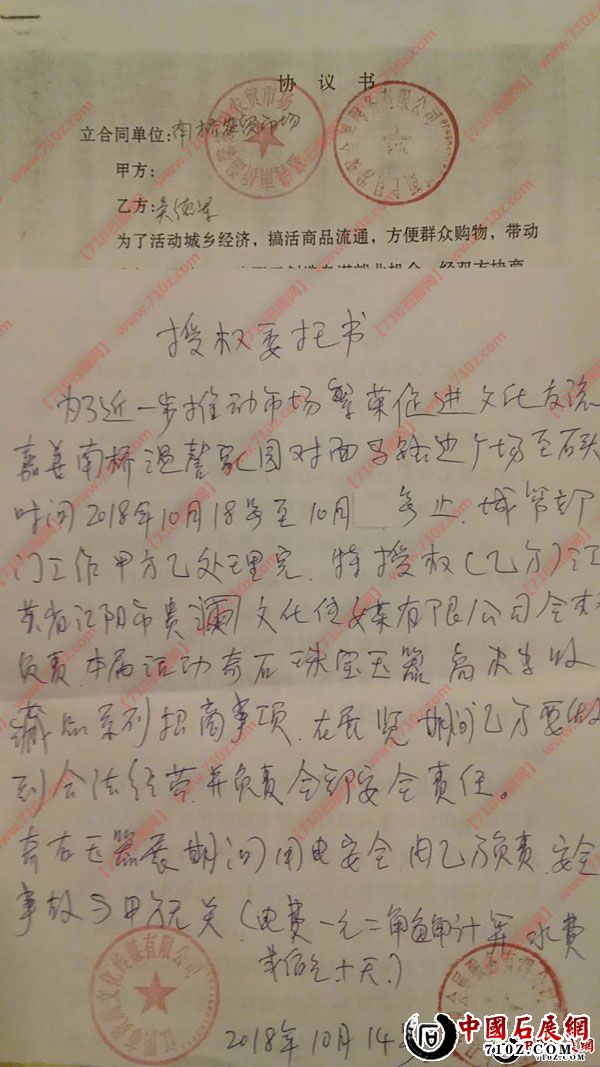 协 议 书
立合同单位:南桥农贸市场
甲方:
乙方:吴德
为了活动城乡经济，搞活商品流通，方便群众购物，带动
授权委托书
为了近一步推动市场繁荣促进文化交流
嘉善南桥温馨家园对面马路边广场至石头
时间2018年10月18号至10月 号止.城管部
门工作甲方已处理完.特授权(乙方)江
苏省江阴市贵澜文化传媒有限公司全权
负责.本届活动奇石珠宝玉器高 收
藏品系列招商事项.在展览期间乙方要做
到合法经营并负责全部安全责任。
奇石玉器展期间用电安全由乙方负责.安全
事故与甲方无关(电费一元二角 计算 水费
贰佰元十天.)
2018年10月14号
文化传媒有限公司
中國石展網
710Z.COM
【710石展网】
www.710z.com